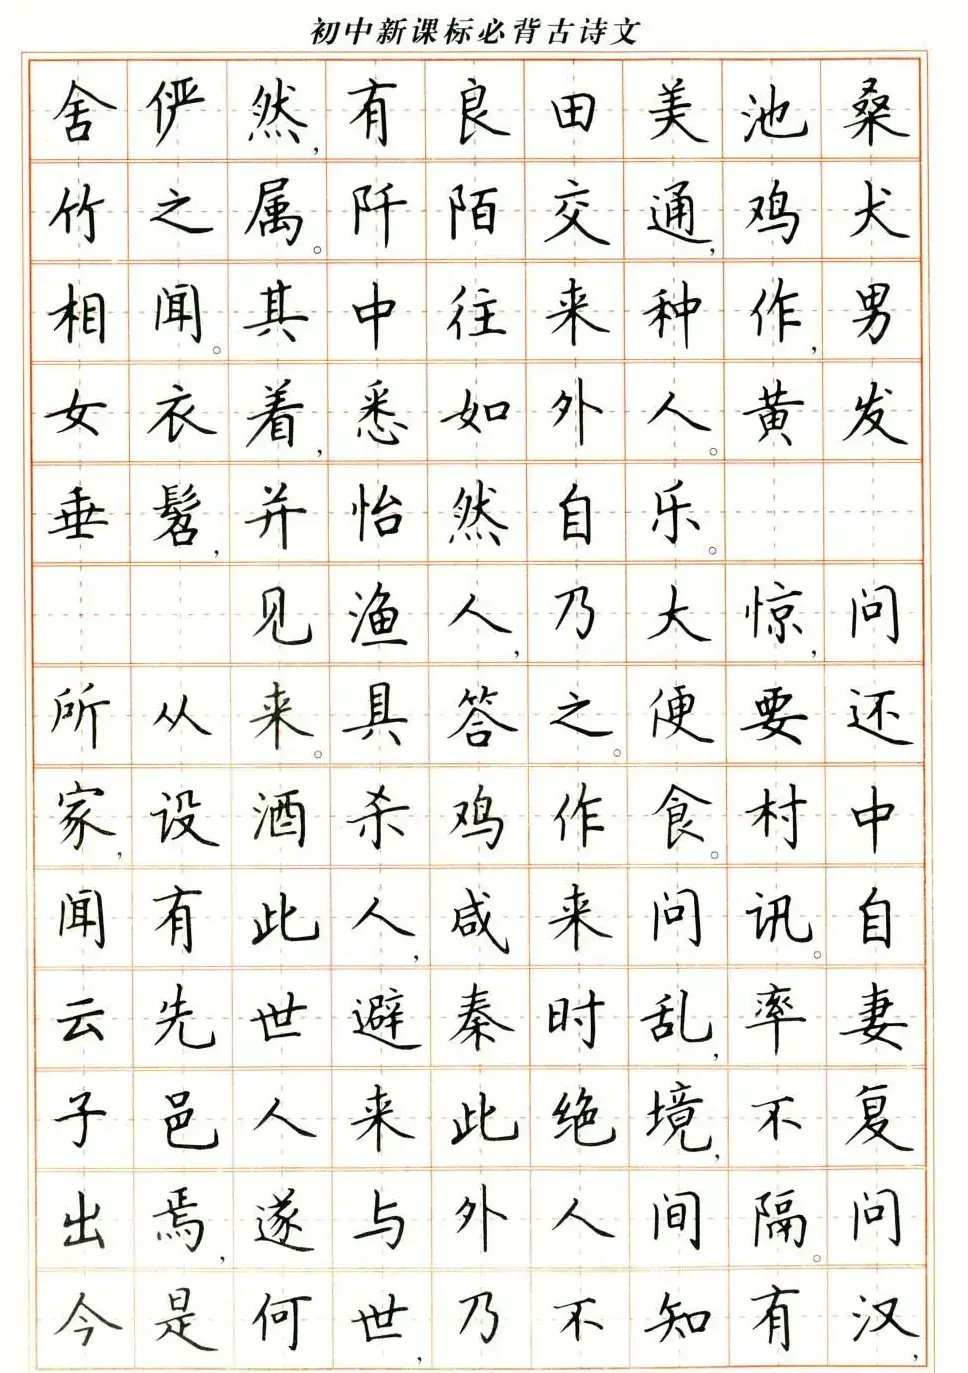 初中新课标必背古诗文
舍俨然,有良田美池桑
竹之属。阡陌交通,鸡犬
相闻。其中往来种作,男
女衣着,悉如外人。黄发
垂髫,并怡然自乐。
见渔人,乃大惊,问
所从来。具答之。便要还
家,设酒杀鸡作食。村中
闻有此人,咸来问讯。自
云先世避秦时乱,率妻
子邑人来此绝境,不复
出焉,遂与外人间隔。问
今是何世,乃不知有汉,